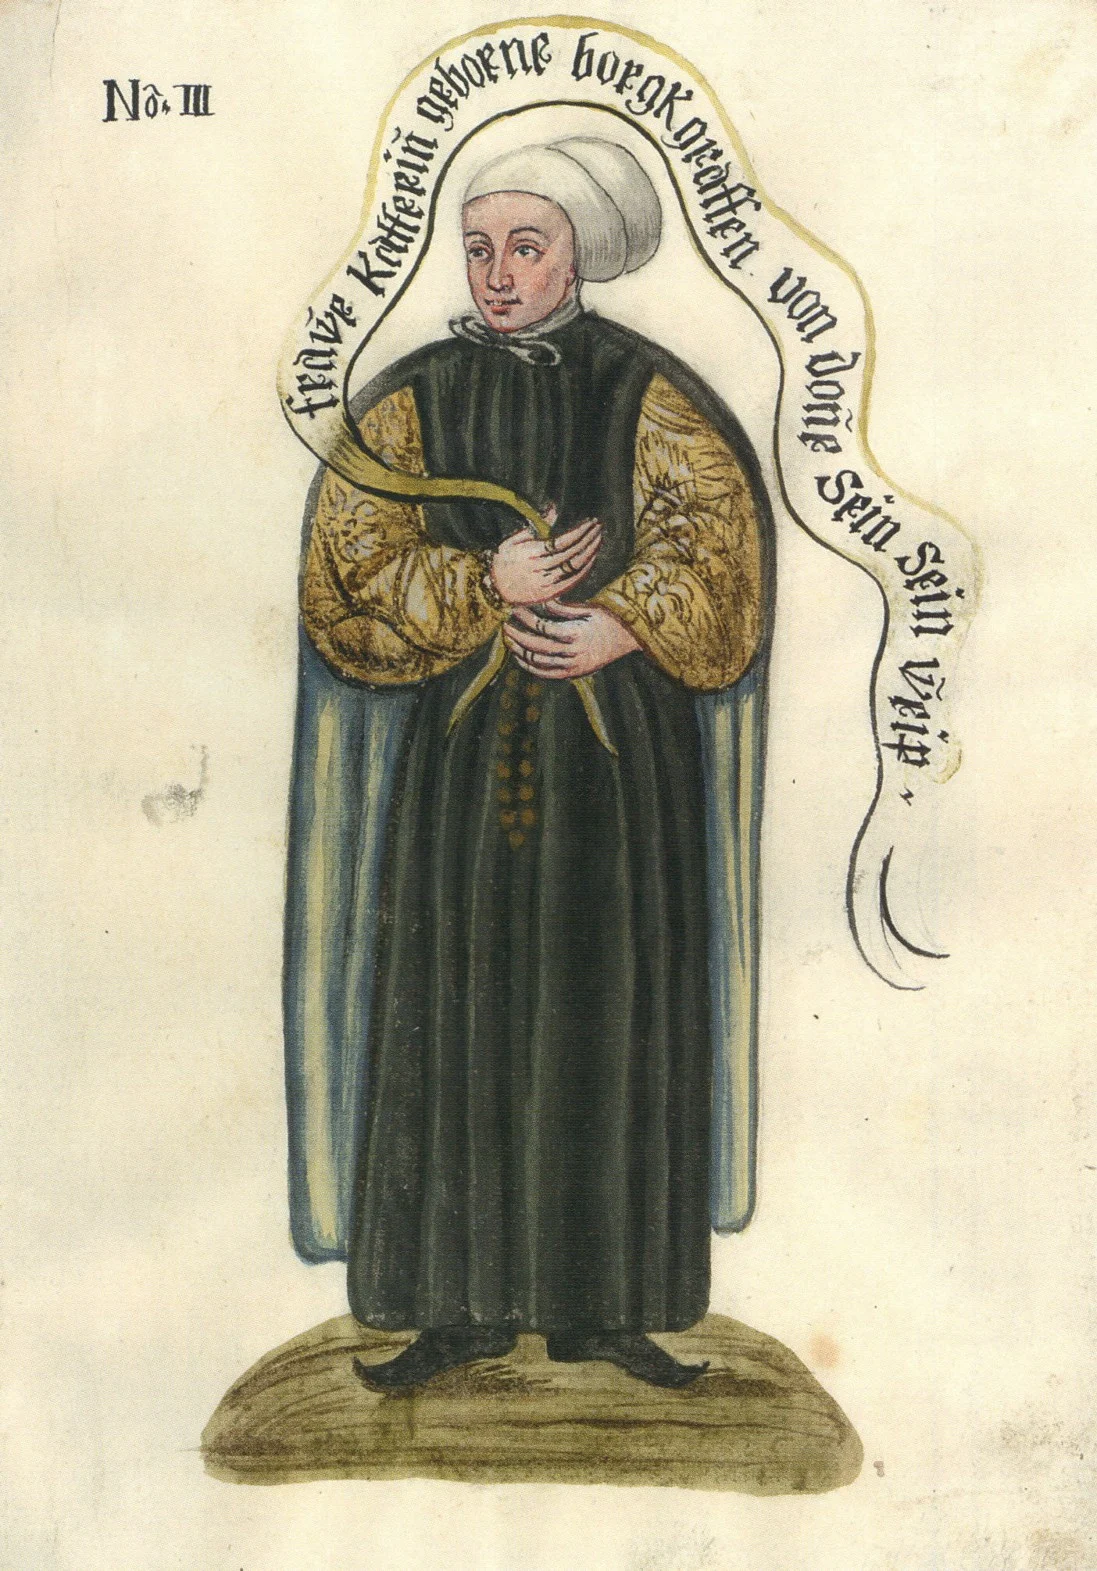 No. III
fraw̃e Katterin̄ geborne borgKgraffen von don̄e Sein Sein w̃eip